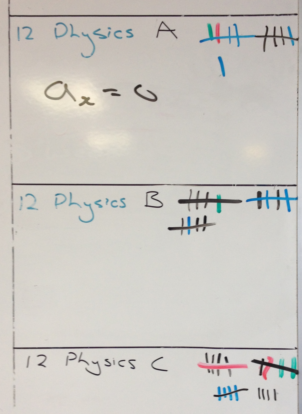 12 Physics A
aₓ = 0
12 Physics B
12 Physics C